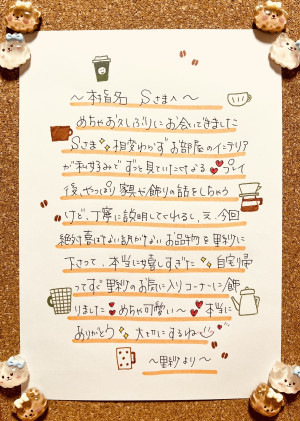 〜本指名 Sさまへ〜
めちゃお久しぶりにお会いできました
Sさま✨相変わらずお部屋のインテリア
が私好みでずっと見ていたくなる❤プレイ
後、やっぱり家具や飾りの話をしちゃう
けど、丁寧に説明してくれるし、え、今回
絶対喜ばない訳がないお品物を里紗に
下さって、本当に嬉しすぎた✨自宅帰
ってすぐ里紗のお気に入りコーナーに飾
りました❤めちゃ可愛い〜❤本当に
ありがとう✨大切にするね
〜里紗より〜